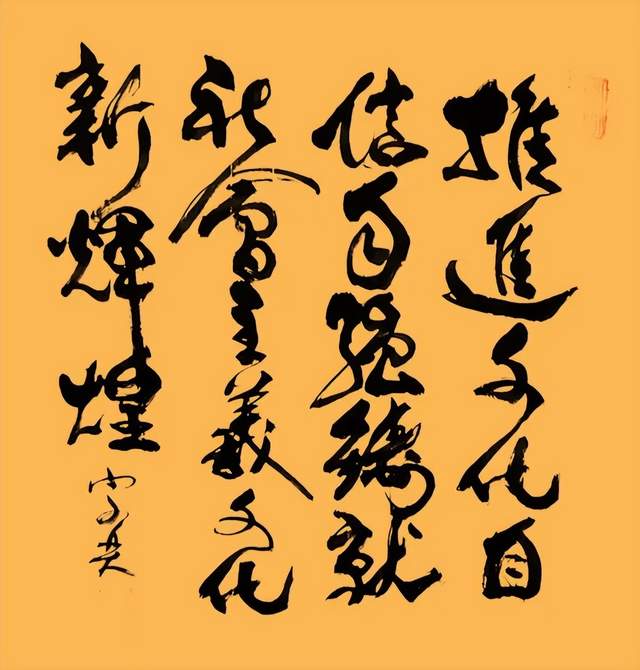 推進文化自
信自強鑄就
社會主義文化
新輝煌